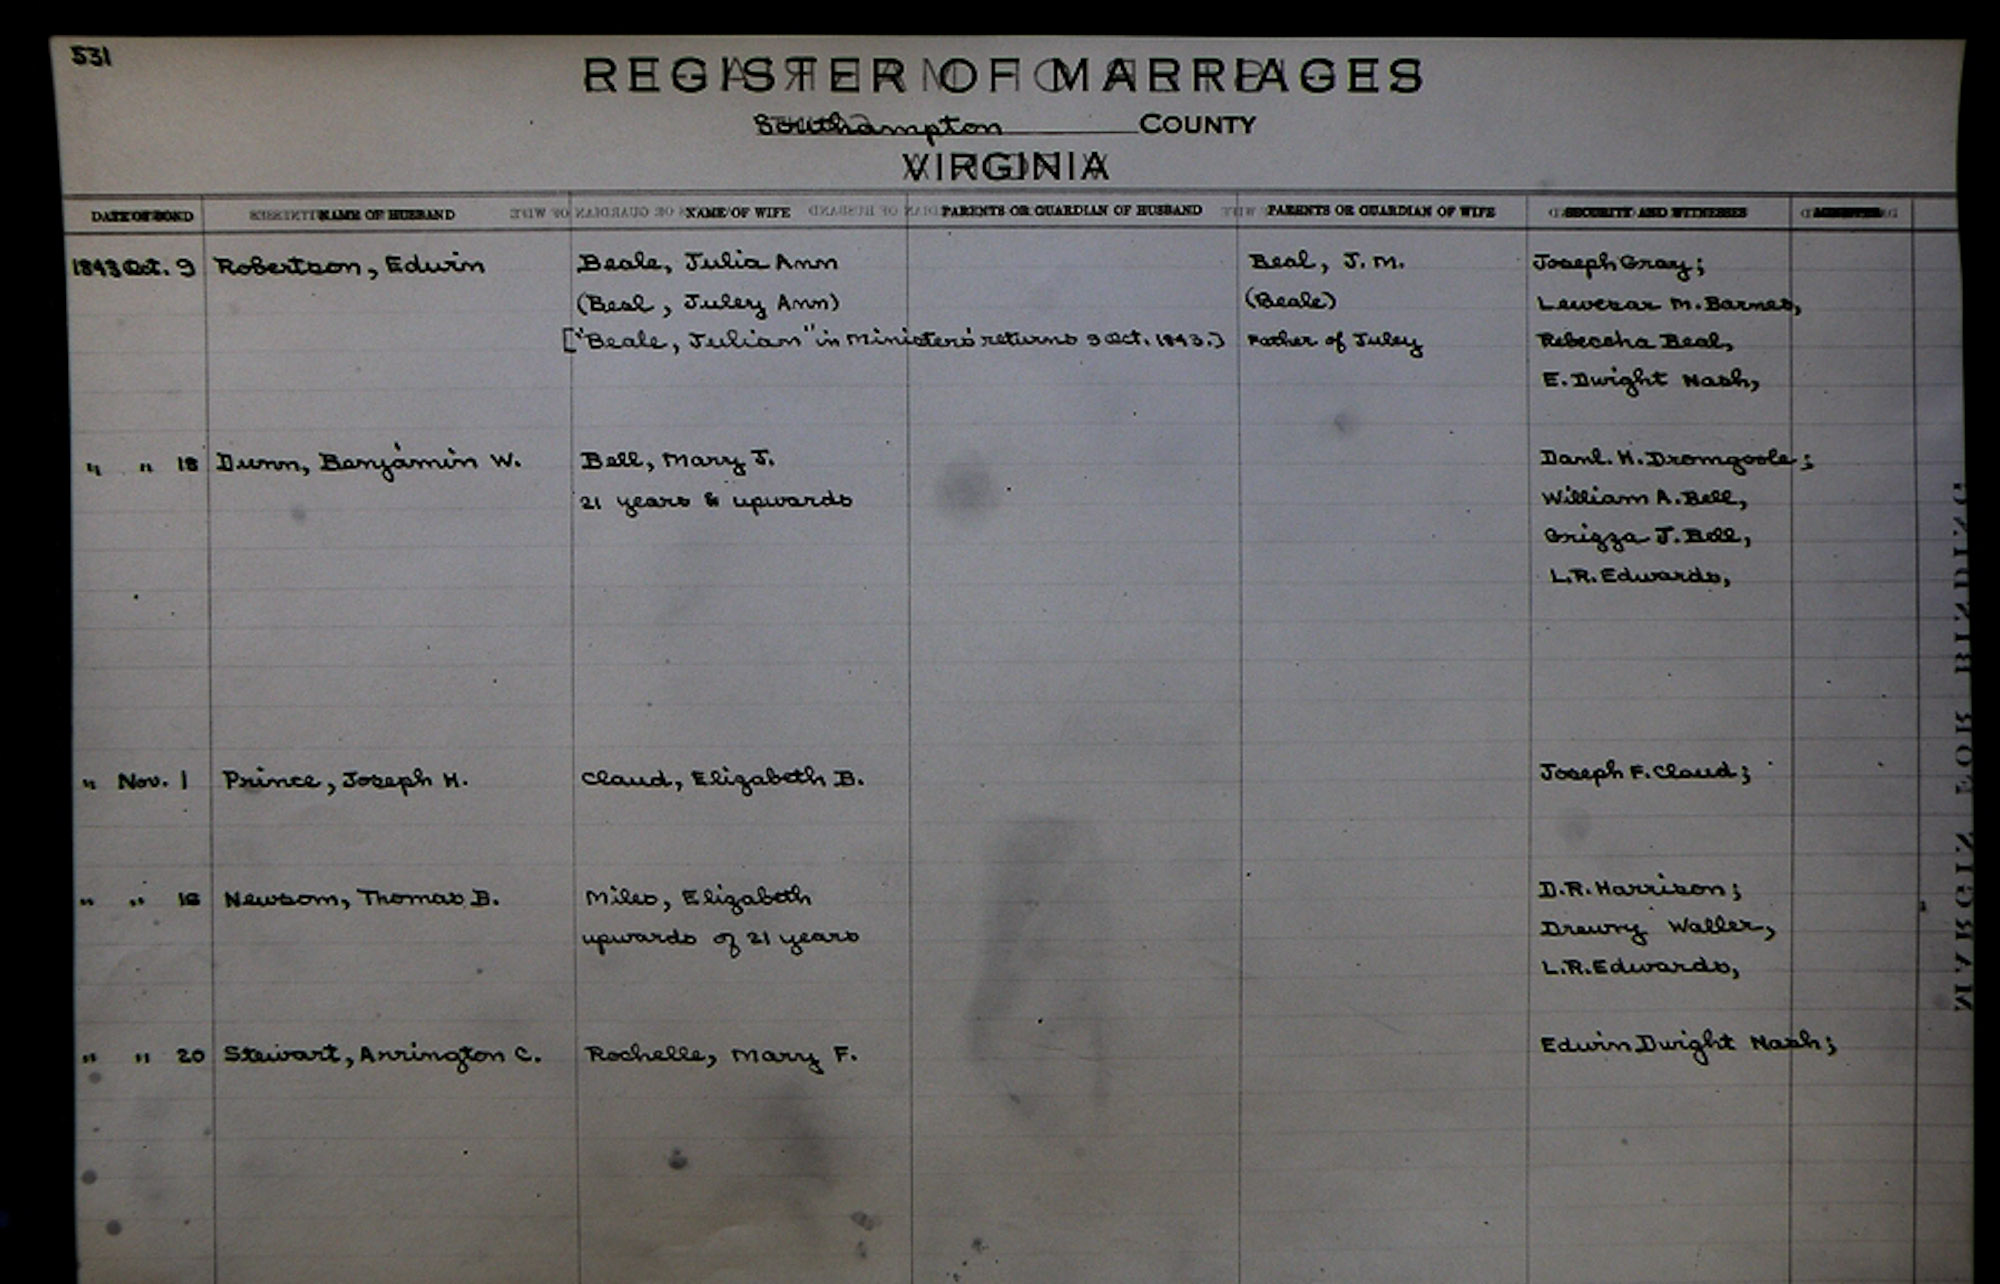 531
REGISTER OF MARRIAGES
Southampton COUNTY
VIRGINIA
DATE OF BOND NAME OF HUSBAND NAME OF WIFE PARENTS OR GUARDIAN OF HUSBAND PARENTS OR GUARDIAN OF WIFE SECURITY AND WITNESSES MINISTER
1843 Oct. 9 Robertson, Edwin Beale, Julia Ann Beal, J. M. Joseph Gray;
(Beal, Juley Ann) (Beale) M. Barnes,
["Beale, Julian" in Ministers' returns 9 Oct. 1843.] Father of Juley Rebeccha Beal,
E. Dwight Nash,
" " 18 Dunn, Benjamin W. Bell, Mary J. Danl. H. Dromgoole;
21 years & upwards William A. Bell,
Grizza J. Bell,
L.R. Edwards,
" Nov. 1 Prince, Joseph H. Claud, Elizabeth B. Joseph F. Claud;
" " 16 Newsom, Thomas B. Miles, Elizabeth D.R. Harrison;
upwards of 21 years Drewry Waller,
L.R. Edwards,
" " 20 Stewart, Arrington C. Rochelle, Mary F. Edwin Dwight Nash;